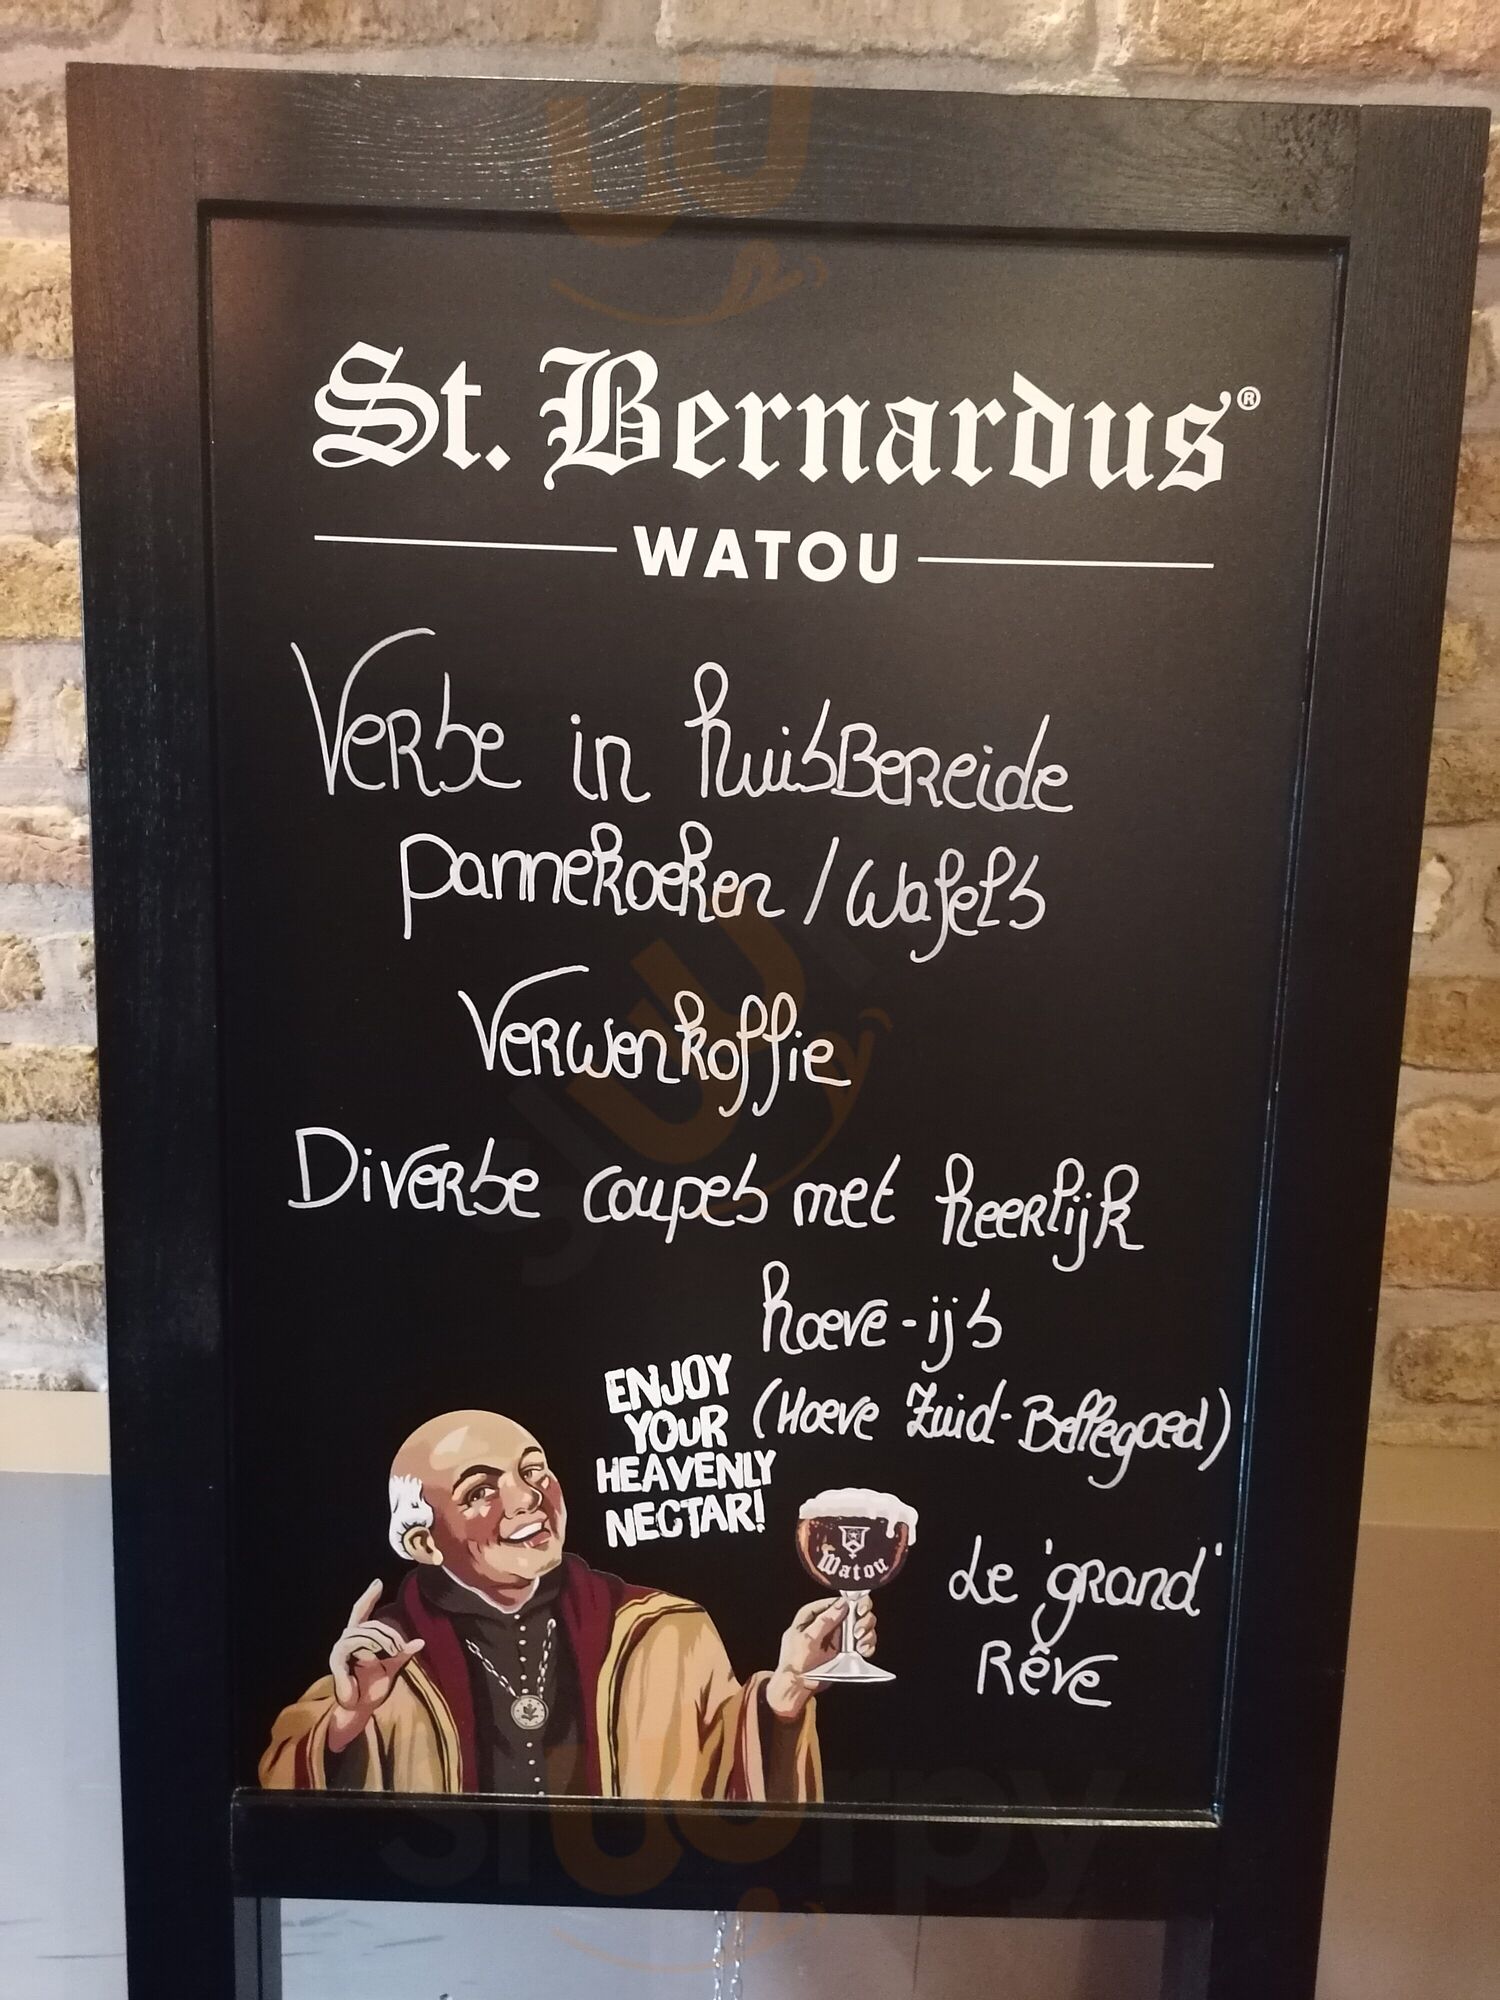 St. Bernardus®
WATOU
Verse in huisBereide
pannekoeken / wafels
Verwenkoffie
Diverse coupes met heerlijk
hoeve-ijs
(Hoeve Zuid-Bellegoed)
ENJOY
YOUR
HEAVENLY
NECTAR!
Watou
Le 'grand'
Rêve
slurpy